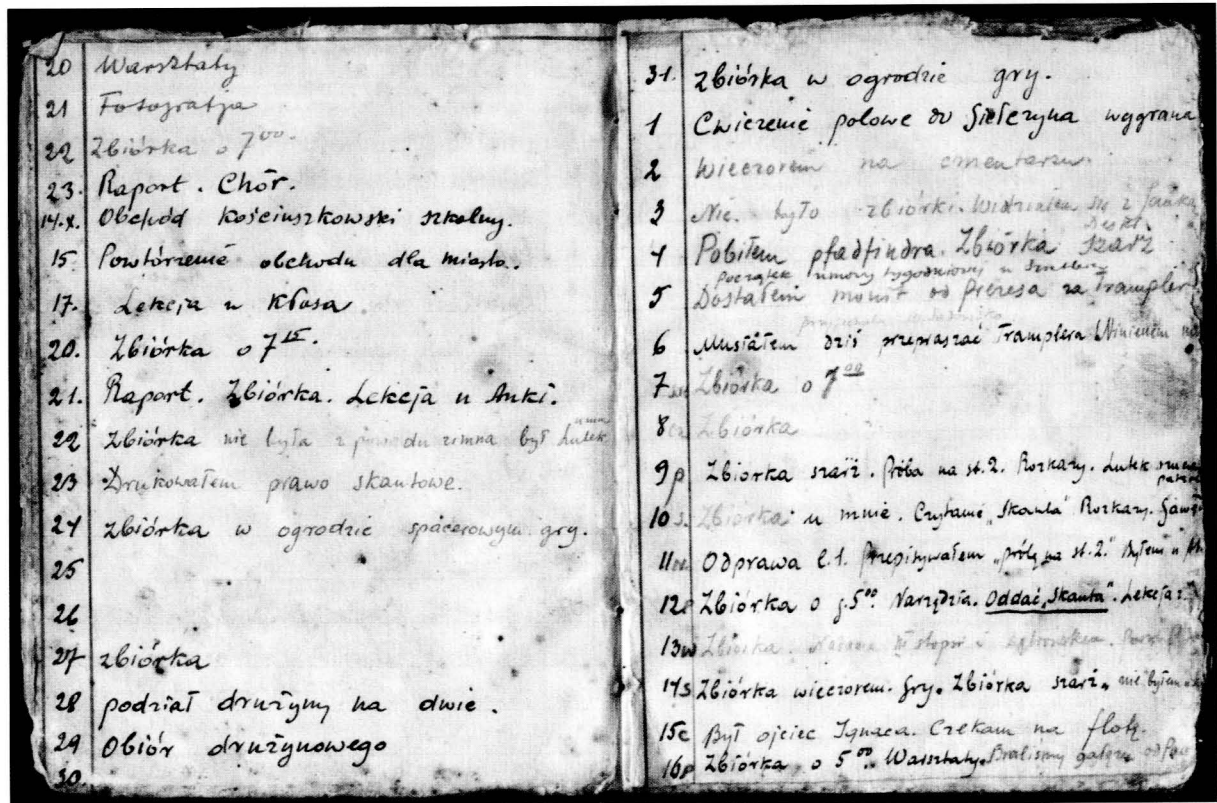 20 Warsztaty
21 Fotografja
22 Zbiórka o 7⁰⁰.
23. Raport. Chór.
14.X. Obchód Kościuszkowski szkolny.
15 Powtórzenie obchodu dla miasta.
17. Lekcja u Kłosa
20. Zbiórka o 7¹⁵.
21. Raport. Zbiórka. Lekcja u Anki.
22 Zbiórka nie była z powodu zimna był Lutek
23 Drukowałem prawo skautowe.
24 Zbiórka w ogrodzie spacerowym gry.
25
26
27 zbiórka
28 podział drużyny na dwie.
29 Obiór drużynowego
30
31. Zbiórka w ogrodzie gry.
1 Cwiczenie polowe do Sielczyna wygrana
2 Wieczorem na cmentarzu.
3 Nie było zbiórki. Widziałem się z
4 Pobiłem pfadfindra. Zbiórka szarż
początek umowy tygodniowej
5 Dostałem monit od prezesa za Trampler
6 Musiałem dziś przepraszać Tramplera
7 Zbiórka o 7⁰⁰
8 Zbiórka
9p Zbiórka szarż. Próba na st. 2. Rozkazy. Lutek
10 Zbiórka u mnie. Czytanie „Skauta" Rozkazy.
11 Odprawa l.1. Przepisywałem „próby na st. 2." Byłem u
12 Zbiórka o g. 5⁰⁰. Narzędzia. Oddać „Skauta". Lekcja z
13w Zbiórka
14s Zbiórka wieczorem. Gry. Zbiórka szarż. nie byłem
15c Był ojciec Ignaca. Czekam na flotę.
16p Zbiórka o 5⁰⁰. Warsztaty. Braliśmy